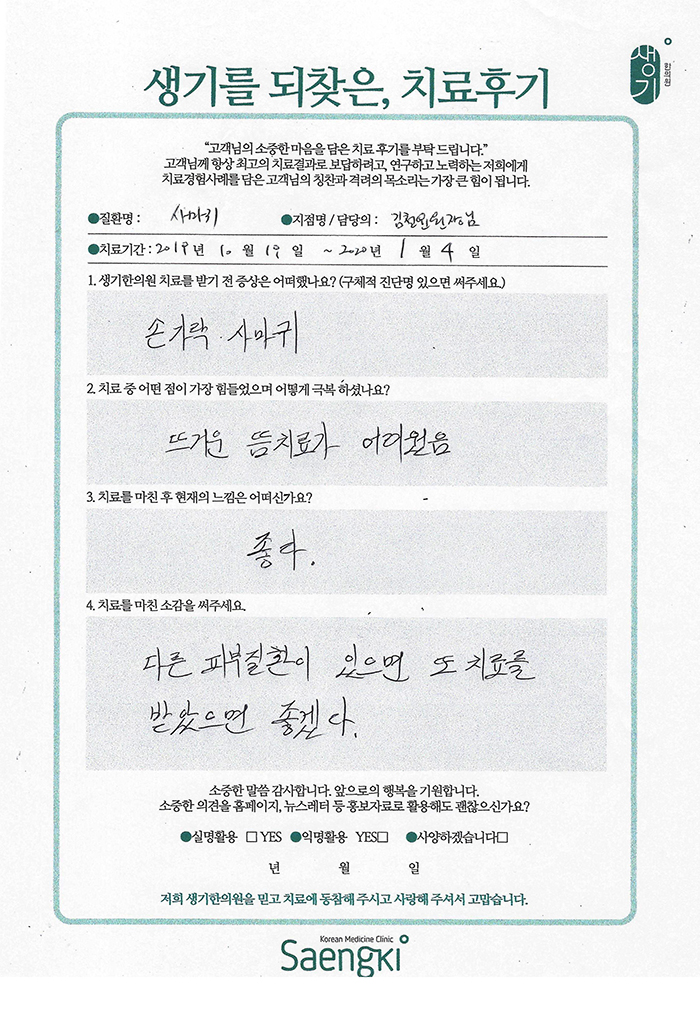 생기
한의원
생기를 되찾은, 치료후기
“고객님의 소중한 마음을 담은 치료 후기를 부탁 드립니다.”
고객님께 항상 최고의 치료결과로 보답하려고, 연구하고 노력하는 저희에게
치료경험사례를 담은 고객님의 칭찬과 격려의 목소리는 가장 큰 힘이 됩니다.
●질환명 : 사마귀 ●지점명 / 담당의 : 원장님
●치료기간 : 2019 년 10 월 19 일 ~ 2020 년 1 월 4 일
1. 생기한의원 치료를 받기 전 증상은 어떠했나요? (구체적 진단명 있으면 써주세요.)
손가락 사마귀
2. 치료 중 어떤 점이 가장 힘들었으며 어떻게 극복 하셨나요?
뜨거운 뜸치료가
3. 치료를 마친 후 현재의 느낌은 어떠신가요?
좋다.
4. 치료를 마친 소감을 써주세요.
다른 피부질환이 있으면 또 치료를
받았으면 좋겠다.
소중한 말씀 감사합니다. 앞으로의 행복을 기원합니다.
소중한 의견을 홈페이지, 뉴스레터 등 홍보자료로 활용해도 괜찮으신가요?
●실명활용 □ YES ●익명활용 YES□ ●사양하겠습니다□
년 월 일
저희 생기한의원을 믿고 치료에 동참해 주시고 사랑해 주셔서 고맙습니다.
Korean Medicine Clinic
Saengki